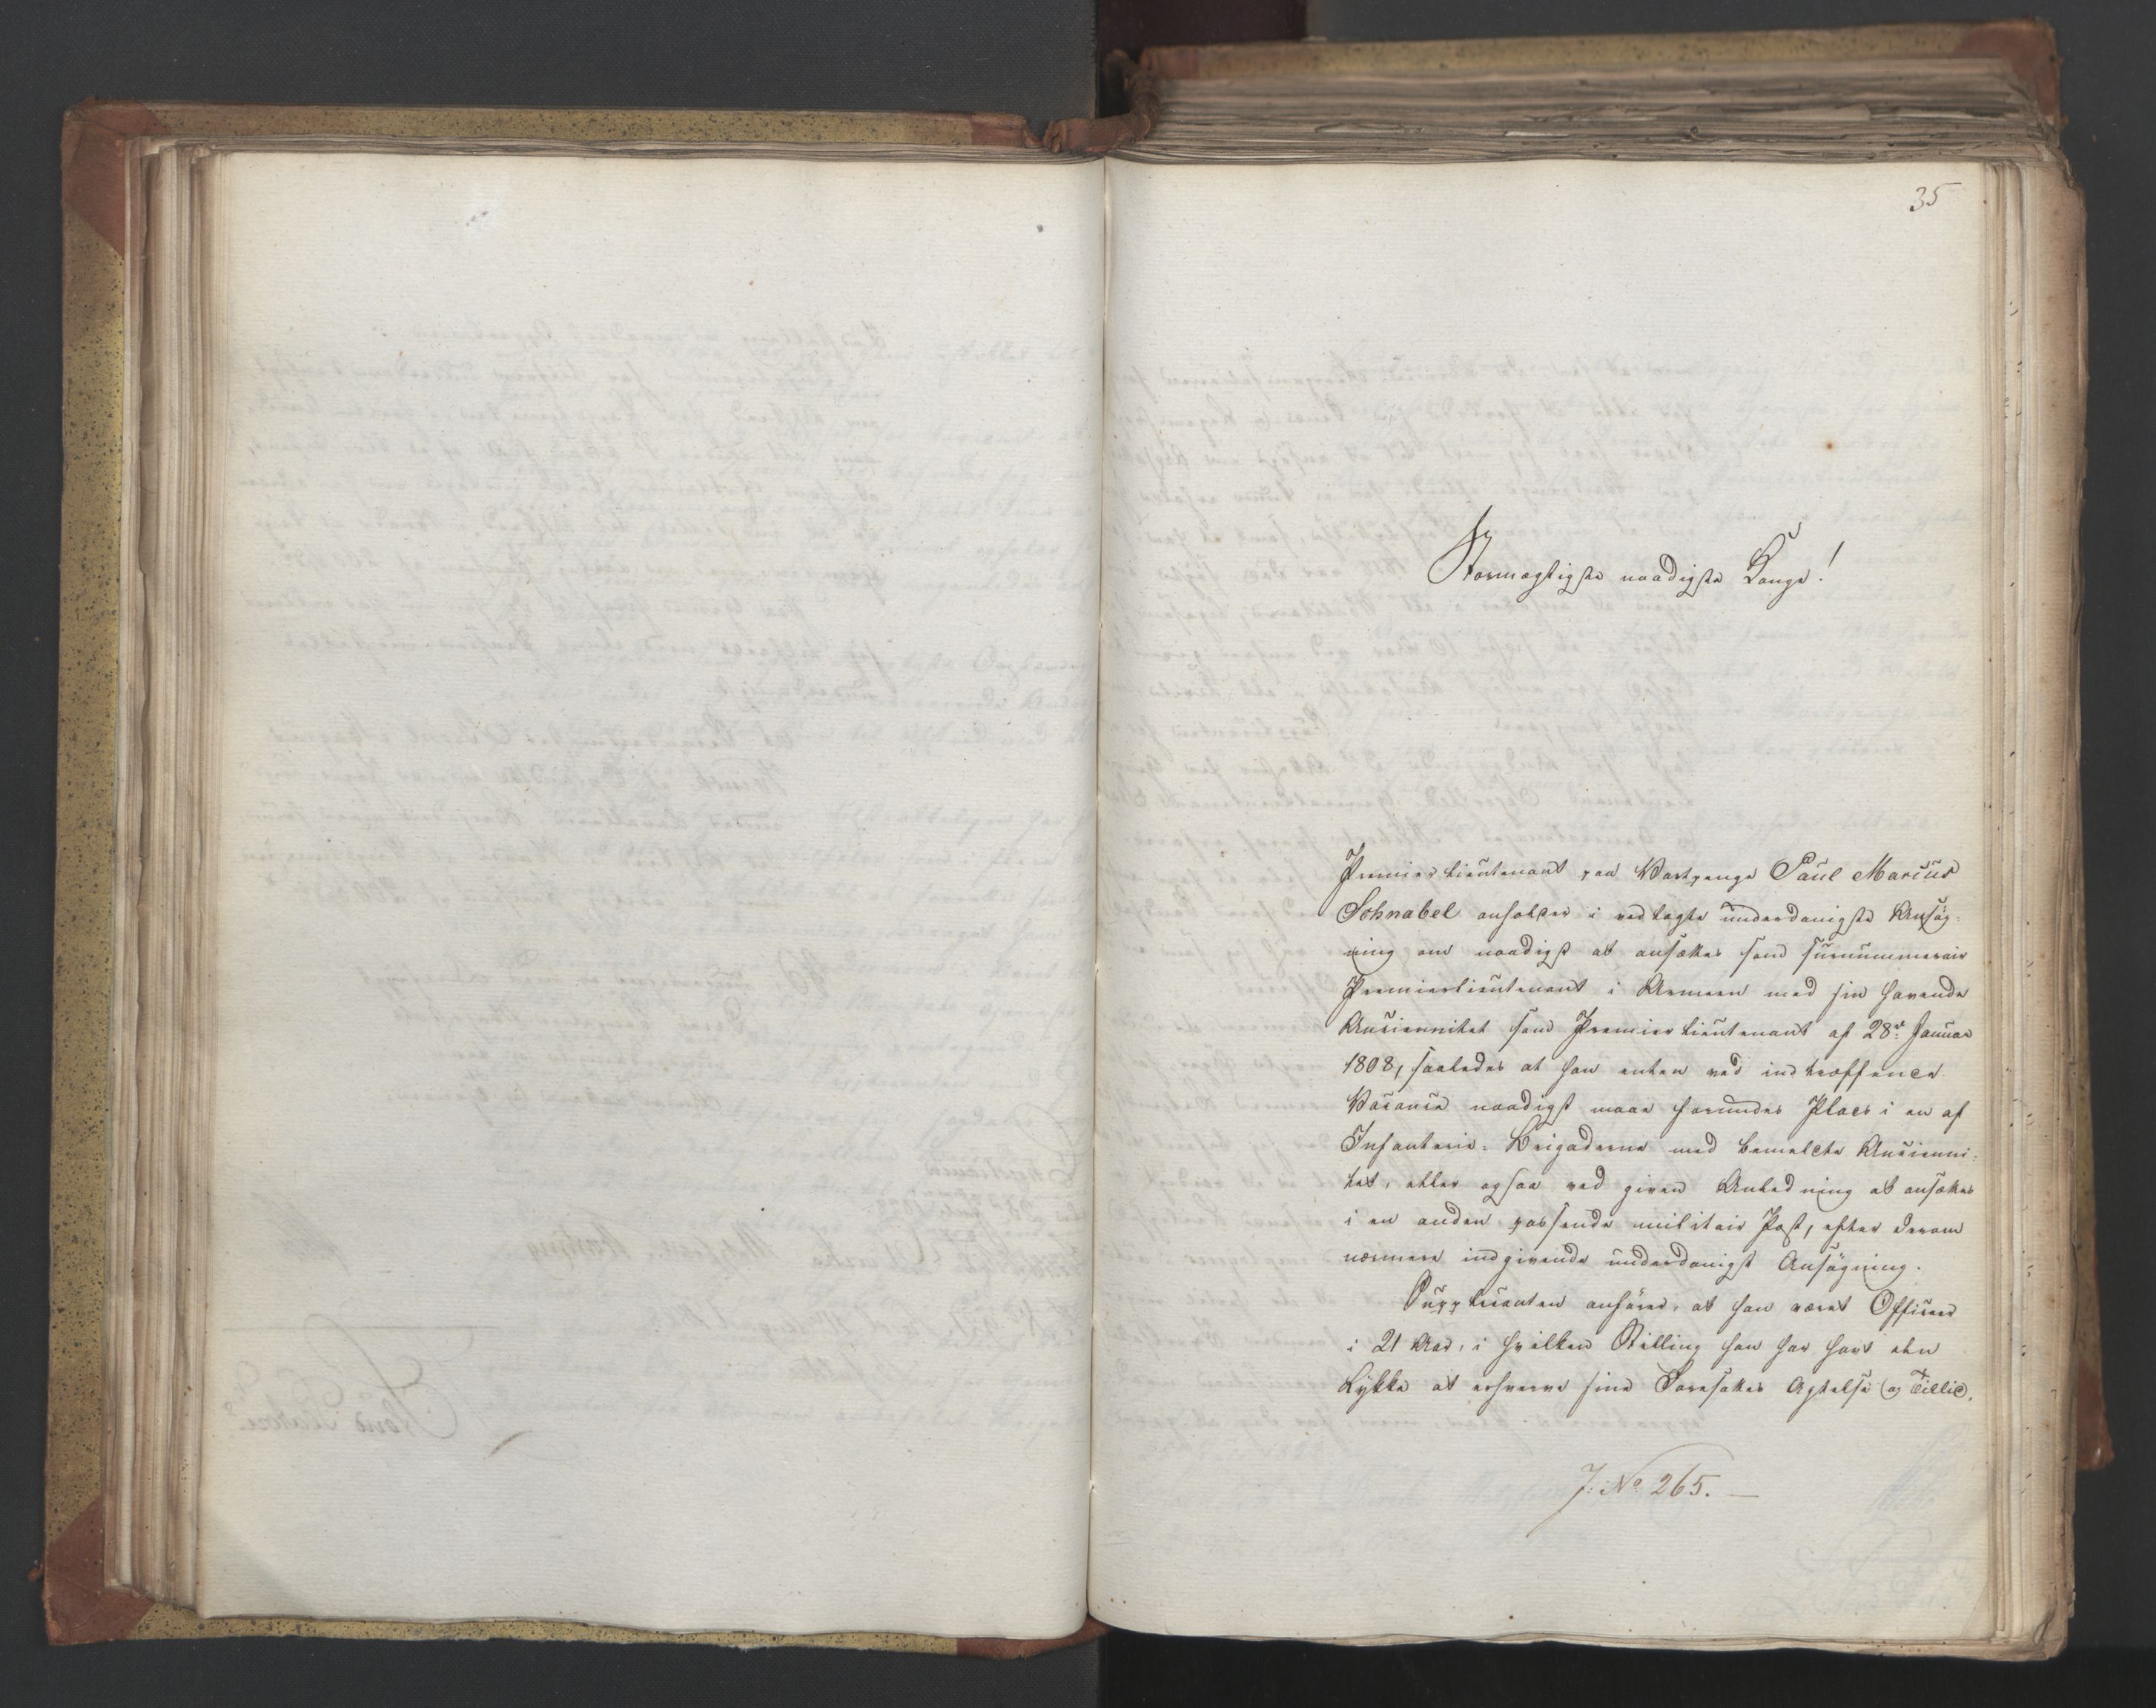 35
Stormægtigste naadigste Konge!
Premierlieutenant paa Vartpenge Paul Marius
Schnabel anholder i vedlagte underdanigste Ansøg-
ning om naadigst at ansættes som surnummerair
Premierlieutenant i Armeen med sin havende
Anciennitet som Premierlieutenant af 28de Januar
1808, saaledes at han enten ved indtræffende
Vacance naadigst maae forundes Plads i en af
Infanterie-Brigaderne med bemeldte Ancienni-
tet, eller ogsaa ved given Anledning at ansættes
i en anden passende militair Post, efter derom
nærmere indgivende underdanigst Ansøgning.
Supplicanten anfører, at han været Officeer
i 21 Aar, i hvilken Stilling han har havt den
Lykke at erhverve sine Foresattes Agtelse og Tillid,
J: No 265. —